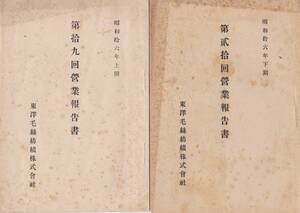 昭和拾六年上期
第拾九回營業報告書
東洋毛絲紡績株式會社
昭和拾六年下期
第貳拾回營業報告書
東洋毛絲紡績株式會社